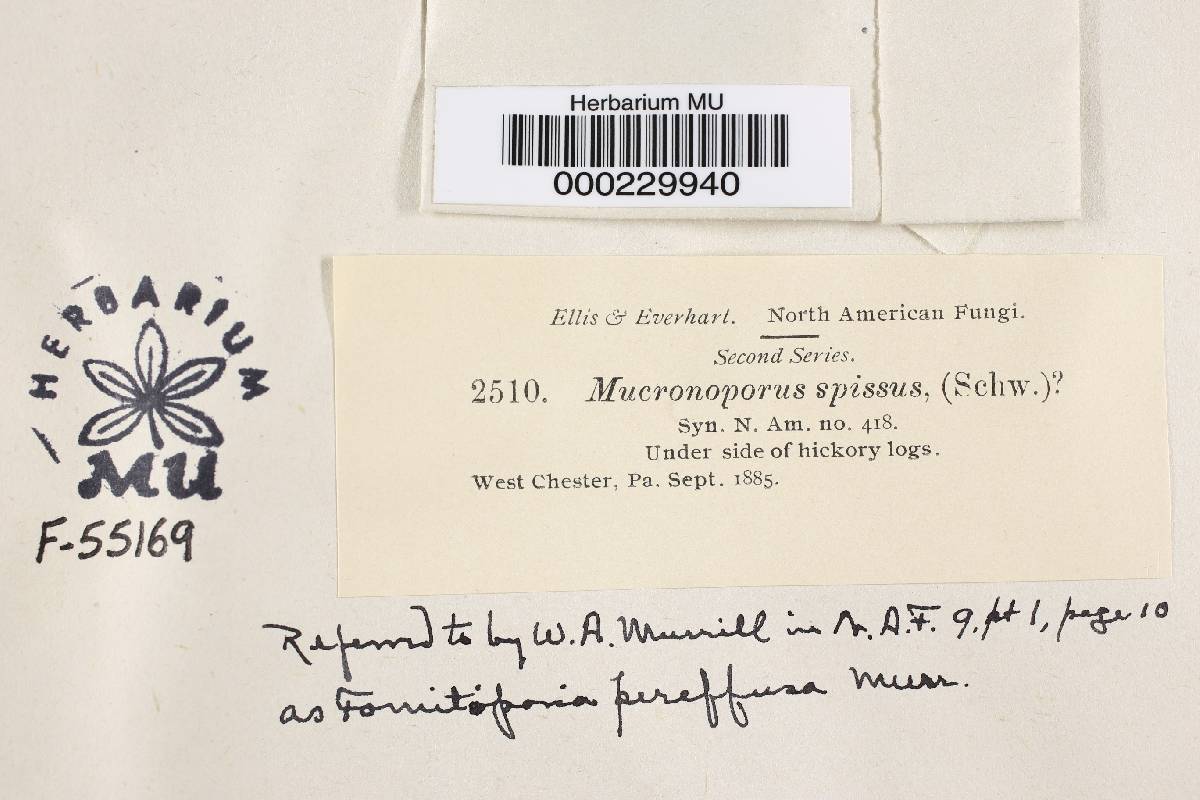 Herbarium MU
000229940
HERBARIUM
MU
F-55169
Ellis & Everhart. North American Fungi.
Second Series.
2510. Mucronoporus spissus, (Schw.)?
Syn. N. Am. no. 418.
Under side of hickory logs.
West Chester, Pa. Sept. 1885.
Referred to by W. A. Murrill in N. A. F. 9, pt 1, page 10
as Fomitiporia pereffusa Murr.